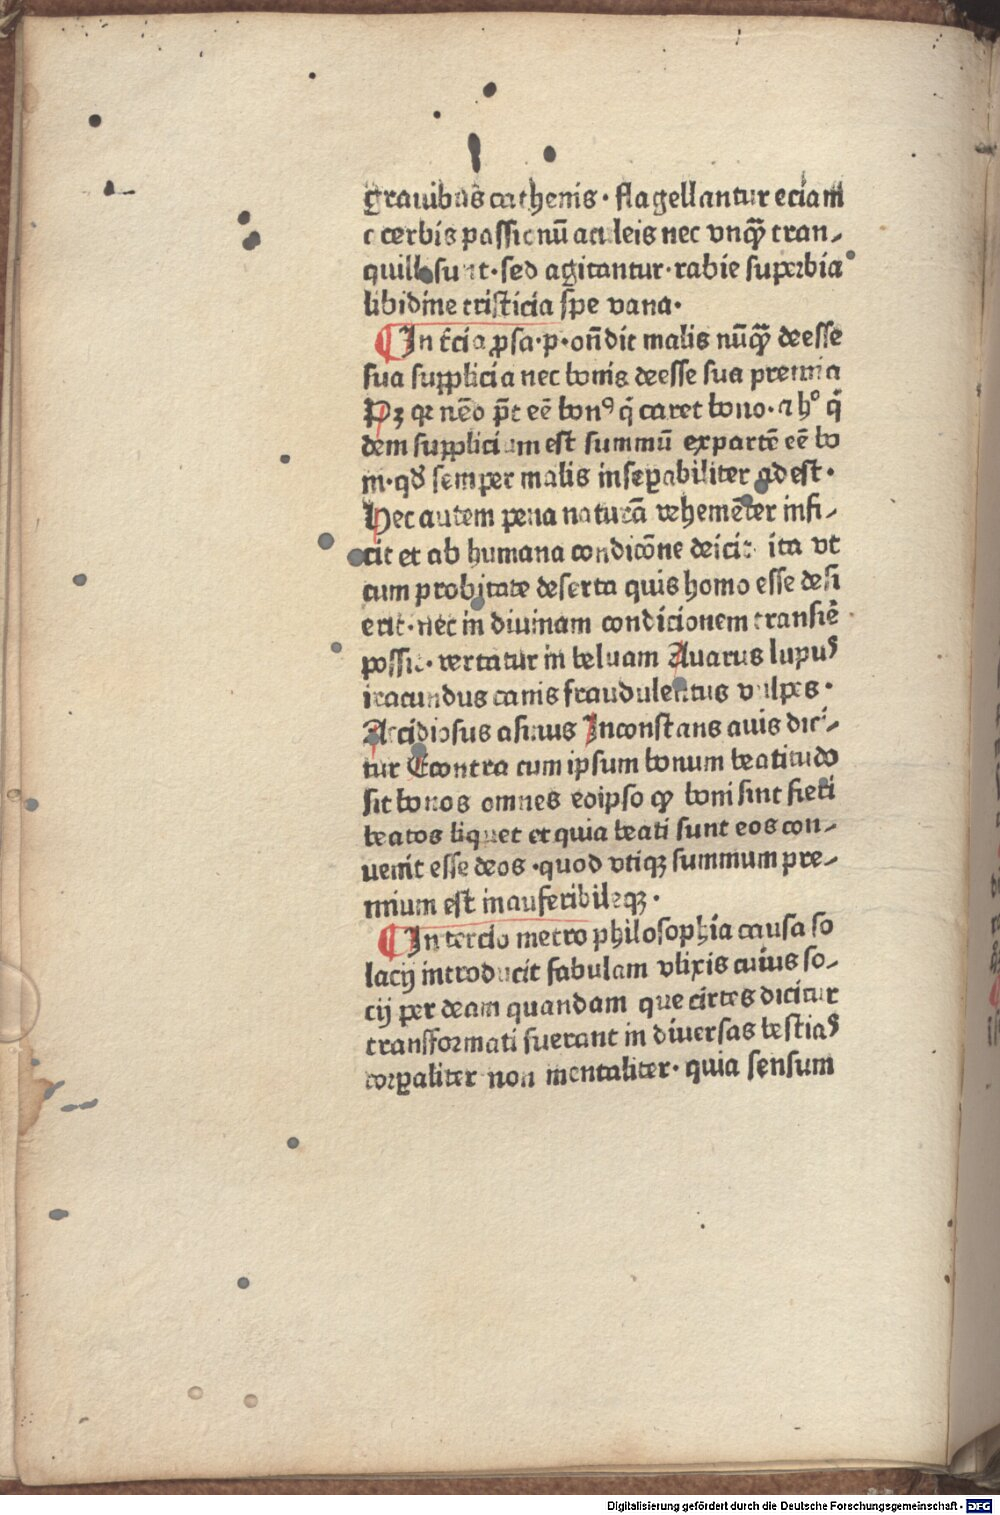 grauibus cathenis · flagellantur eciam
acerbis passionū aculeis nec vnqȝ tran⸗
quilli sunt · sed agitantur · rabie superbia
libidine tristicia spe vana ·
¶ In t̄cia ꝓsa · p · on̄dit malis nūqȝ deesse
sua supplicia nec bonis deesse sua premia
Pȝ qꝛ nēo p̄t eē bonꝰ q̇ caret bono · ⁊ hͦ q̇
dem supplicium est summū ex parte eē bo
ni · qđ semper malis inseꝑabiliter adest ·
Hec autem pena naturā vehemēter infi⸗
cit et ab humana condicōne deicit ita vt
cum probitate deserta quis homo esse desi
erit · nec in diuinam condicionem transiē
possit · vertatur in beluam Auarus lupuꝰ
iracundus canis fraudulentus vulpes ·
Accidiosus asinus Inconstans auis dici⸗
tur Econtra cum ipsum bonum beatitudo
sit bonos omnes eoipso ꝙ boni sint fieri
beatos liquet et quia beati sunt eos con⸗
uenit esse deos · quod vtiqȝ summum pre⸗
mium est inauferibileqȝ ·
¶ In tercio metro philosophia causa so
lacij introducit fabulam vlixis cuius so⸗
cij per deam quandam que cirtes dicitur
transformati fuerant in diuersas bestiaꝰ
corꝑaliter non mentaliter · quia sensum
Digitalisierung gefördert durch die Deutsche Forschungsgemeinschaft · DFG